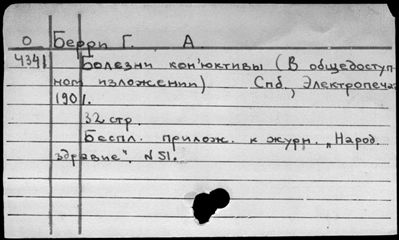 О Берри Г. А.
4341 Болезни кон'юктивы (В общедоступ-
ном изложении) Спб., Электропечат
1901.
32 стр.
Беспл. прилож. к журн. „Народ.
здравие", N 51.